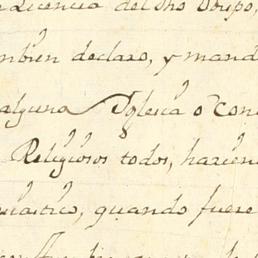 Licencia del dho Obispo,
mbien declaro, y mand
alguna Iglesia o Con
Religiosos todos, hacien
siastico, quando fuere